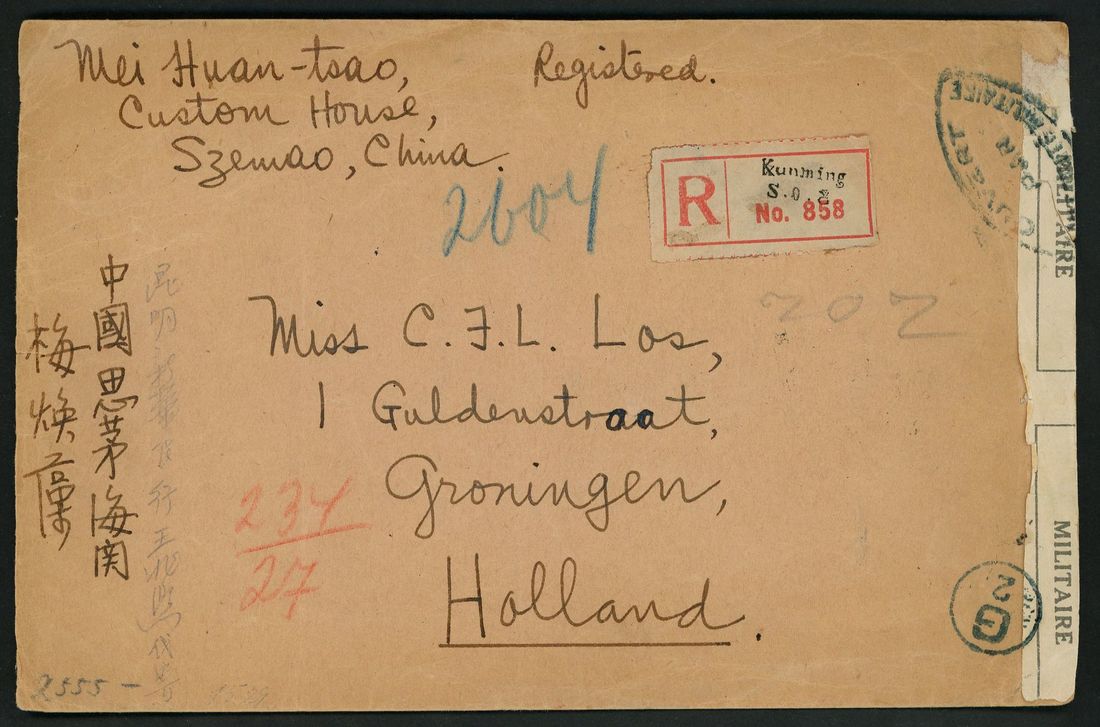 Mei Huan-tsao,
Custom House,
Szemao, China.
Registered.
2604
R
Kunming
S.O.2
No. 858
OUVERT
PAR
MILITAIRE
MILITAIRE
202
中國思茅海関
梅煥
昆明新華銀行王兆
Miss C. F. L. Los,
1 Guldenstraat,
Groningen,
Holland.
234
27
2
G
MILITAIRE
2555 -